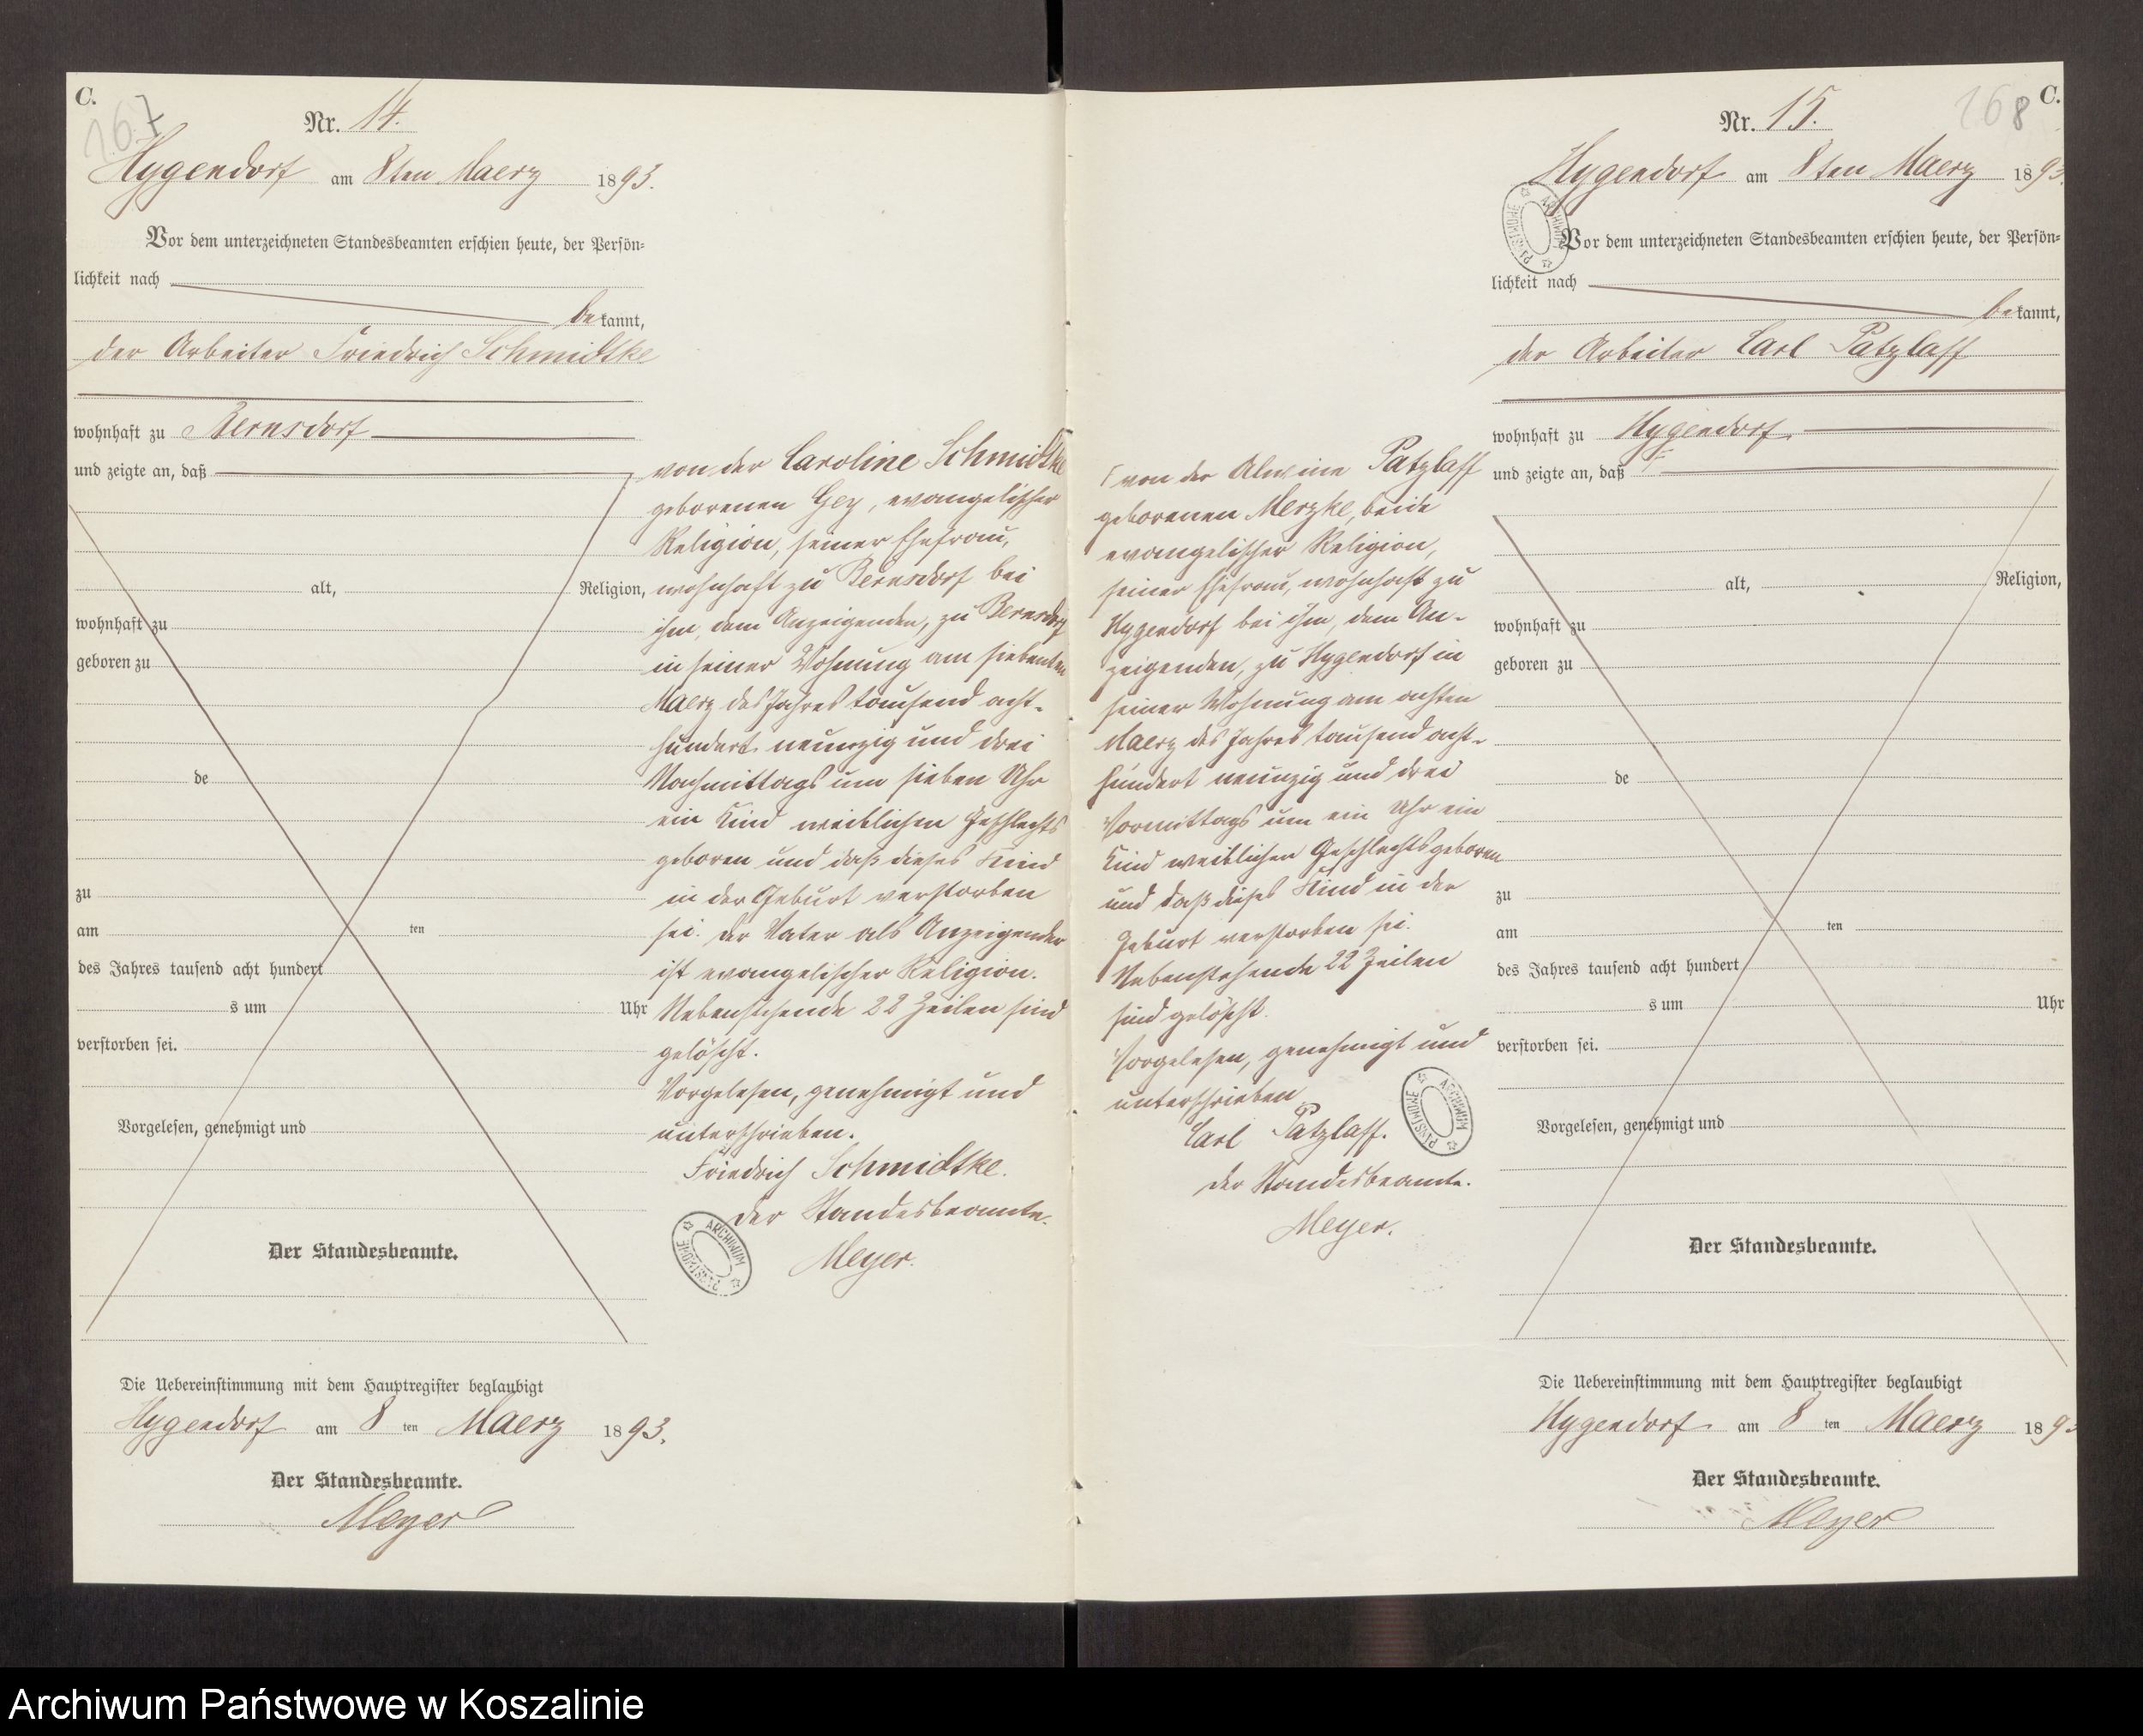 C.
167
Nr. 14.
Hygendorf am 8ten Maerz 1893.
Vor dem unterzeichneten Standesbeamten erschien heute, der Persön-
lichkeit nach
bekannt,
der Arbeiter Friedrich Schmidtke
wohnhaft zu Bernsdorf
und zeigte an, daß
alt, Religion,
wohnhaft zu
geboren zu
de
zu
am ten
des Jahres tausend acht hundert
s um Uhr
verstorben sei.
Vorgelesen, genehmigt und
Der Standesbeamte.
Die Uebereinstimmung mit dem Hauptregister beglaubigt
Hygendorf am 8 ten Maerz 1893.
Der Standesbeamte.
Meyer
von der Caroline Schmidtke
geborenen Gey, evangelischer
Religion, seiner Ehefrau,
wohnhaft zu Bernsdorf bei
ihm, dem Anzeigenden, zu Bernsdorf
in seiner Wohnung am siebenten
Maerz des Jahres tausend acht-
hundert neunzig und drei
Nachmittags um sieben Uhr
ein Kind weiblichen Geschlechts
geboren und daß dieses Kind
in der Geburt verstorben
sei. Der Vater als Anzeigender
ist evangelischer Religion.
Nebenstehende 22 Zeilen sind
gelöscht.
Vorgelesen, genehmigt und
unterschrieben.
Friedrich Schmidtke.
Der Standesbeamte.
Meyer.
ARCHIWUM PAŃSTWOWE
von der Alwine Patzlaff
geborenen Merzke, beide
evangelischer Religion,
seiner Ehefrau, wohnhaft zu
Hygendorf bei ihm, dem An-
zeigenden, zu Hygendorf in
seiner Wohnung am achten
Maerz des Jahres tausend acht-
hundert neunzig und drei
Vormittags um ein Uhr ein
Kind weiblichen Geschlechts geboren
und daß dieses Kind in der
Geburt verstorben sei.
Nebenstehende 22 Zeilen
sind gelöscht.
Vorgelesen, genehmigt und
unterschrieben
Carl Patzlaff.
Der Standesbeamte.
Meyer.
ARCHIWUM PAŃSTWOWE
C.
168
Nr. 15.
Hygendorf am 8ten Maerz 1893
ARCHIWUM PAŃSTWOWE
Vor dem unterzeichneten Standesbeamten erschien heute, der Persön-
lichkeit nach
bekannt,
der Arbeiter Carl Patzlaff
wohnhaft zu Hygendorf.
und zeigte an, daß
alt, Religion,
wohnhaft zu
geboren zu
de
zu
am ten
des Jahres tausend acht hundert
s um Uhr
verstorben sei.
Vorgelesen, genehmigt und
Der Standesbeamte.
Die Uebereinstimmung mit dem Hauptregister beglaubigt
Hygendorf am 8 ten Maerz 189
Der Standesbeamte.
Meyer
Archiwum Państwowe w Koszalinie